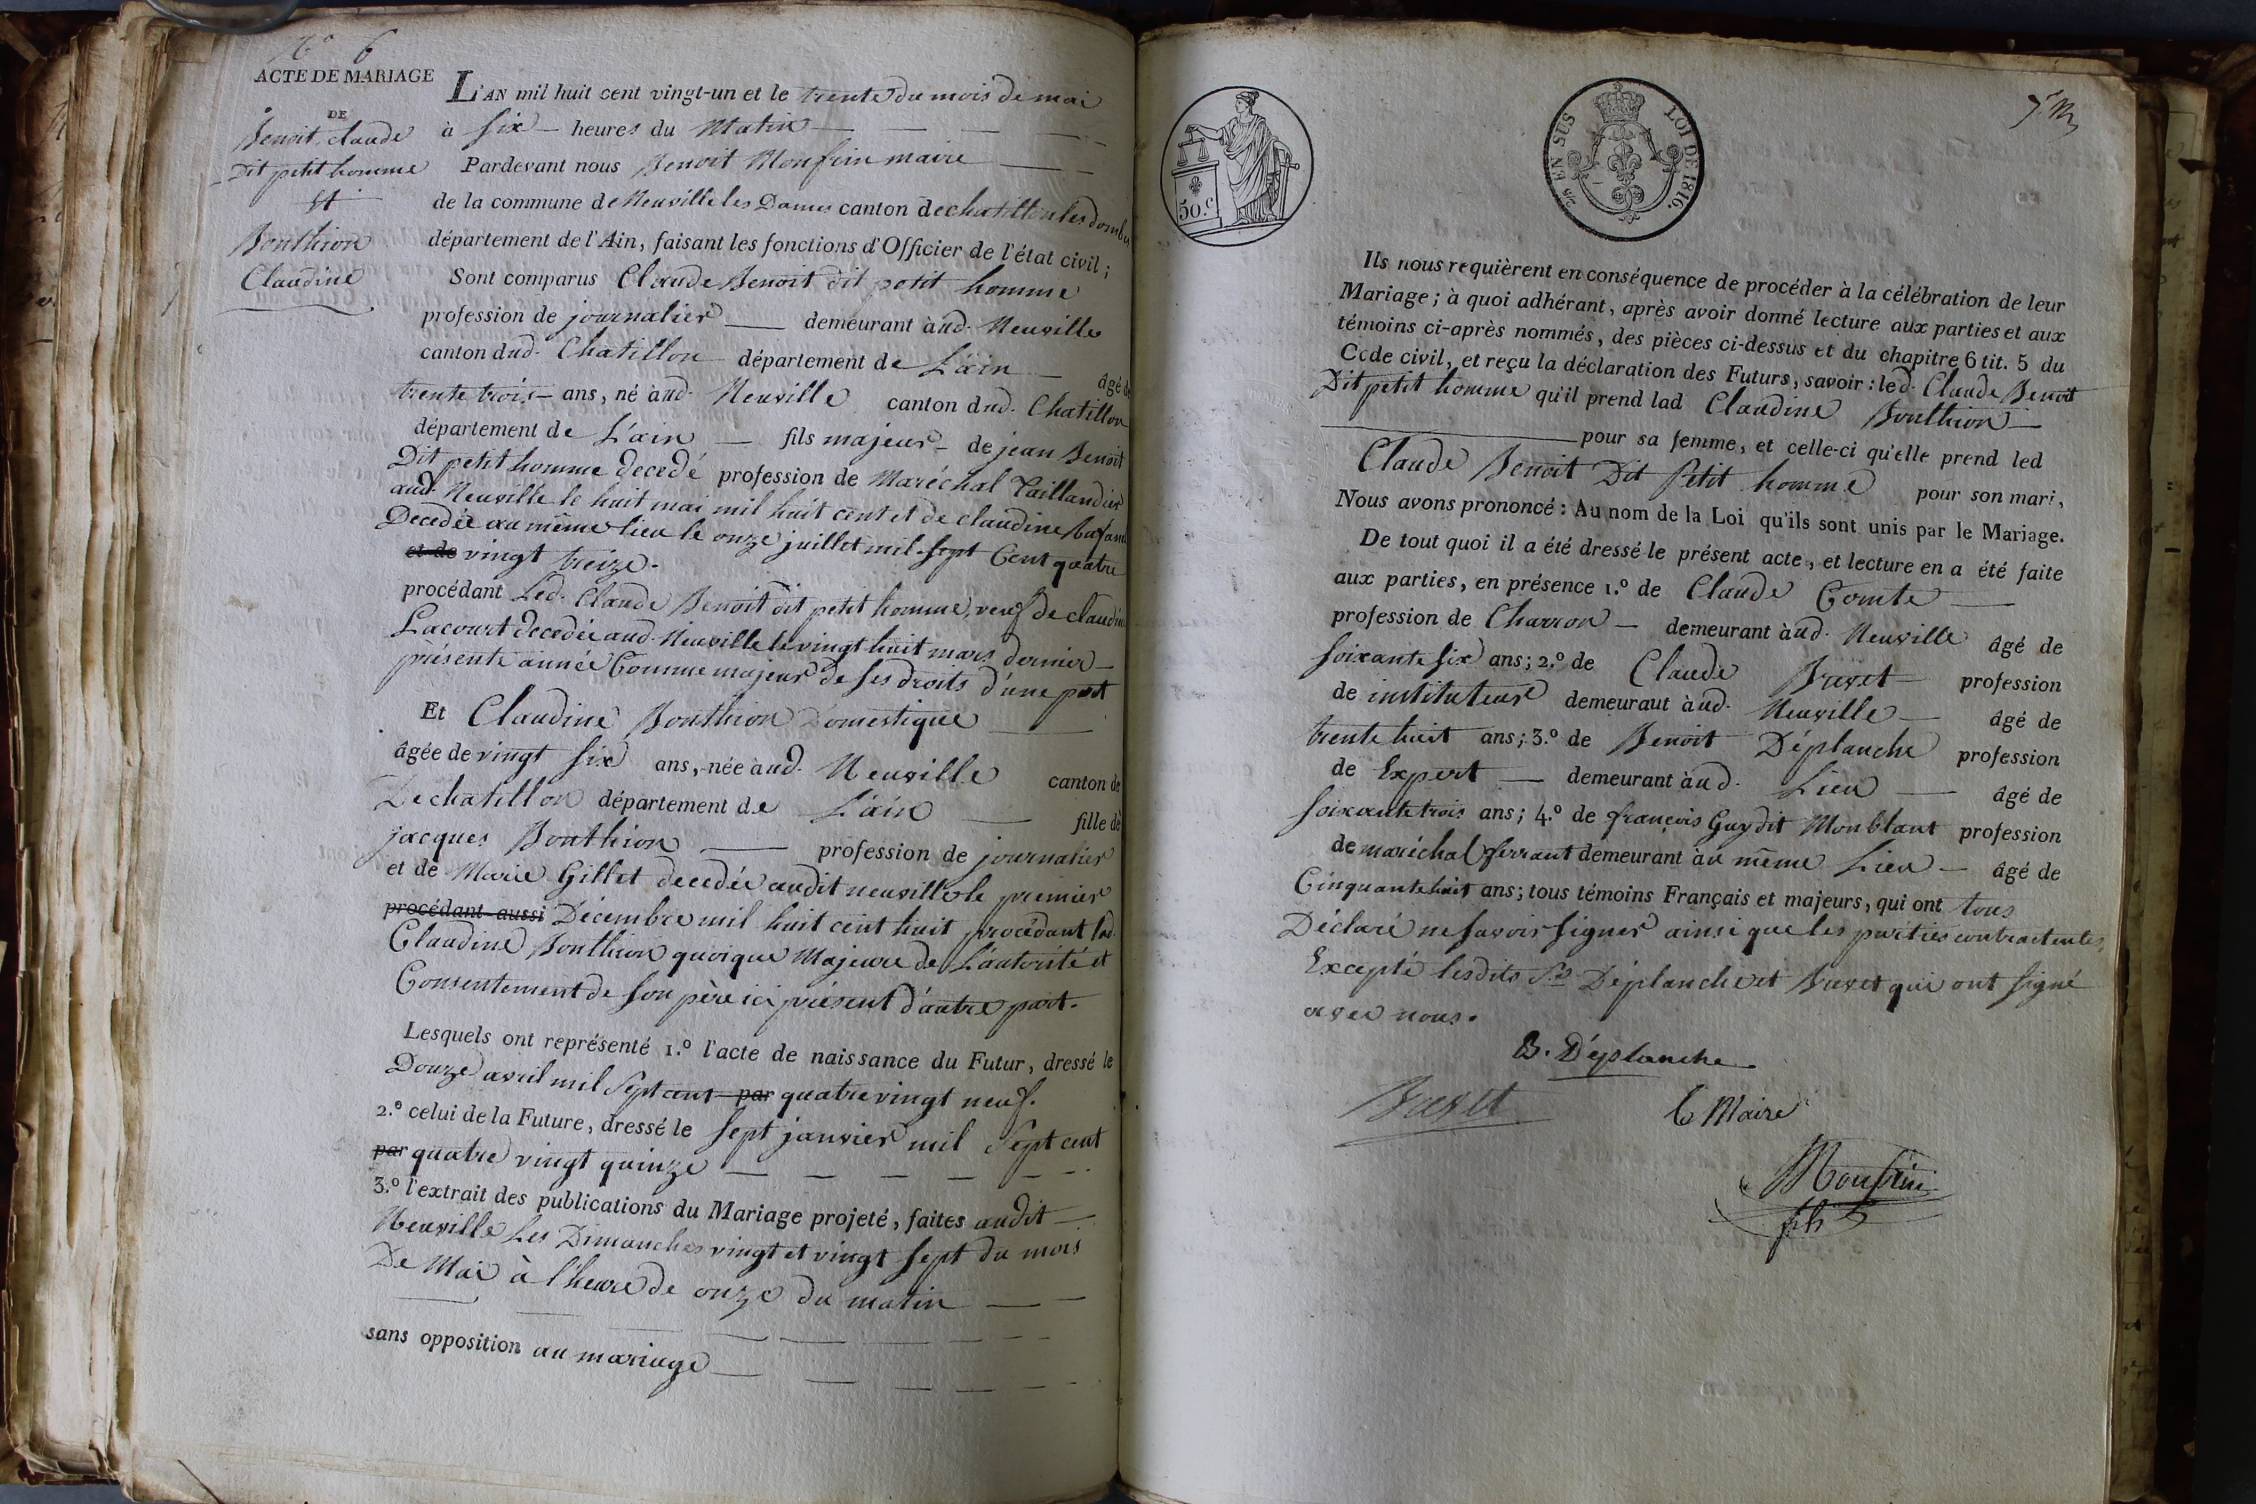 N° 6
ACTE DE MARIAGE
DE
Benoit, claude
Dit petit homme
Et
Bonthion
Claudine
L'AN mil huit cent vingt-un et le trente du mois de mai
à six heures du Matin
Pardevant nous Benoit Monfrin maire
de la commune de Neuville les Dames canton de chatillon les dombes
département de l'Ain, faisant les fonctions d'Officier de l'état civil;
Sont comparus Claude Benoit dit petit homme
profession de journalier demeurant àud. Neuville
canton dud. Chatillon département de L'ain âgé de
trente trois ans, né àud. Neuville canton dud. Chatillon
département de L'ain fils majeur de jean Benoit
Dit petit homme decedé profession de Maréchal Taillandier
aud. Neuville le huit mai mil huit cent et de claudine
Decedée au même lieu le onze juillet mil sept Cent quatre
et de vingt treize.
procédant Led. Claude Benoit dit petit homme, veuf de claudine
Lacourt decedée aud. Neuville le vingt huit mars dernier
présente année Comme majeur de ses droits d'une part
Et Claudine Bonthion Domestique
âgée de vingt six ans, née àud. Neuville canton de
De chatillon département de L'ain fille de
jacques Bonthion profession de journalier
et de Marie Gillet decedée audit neuville le premier
procédant aussi Décembre mil huit cent huit procédant lad.
Claudine Bonthion quoique Majeure de L'autorité et
Consentement de son père ici présent d'autre part.
Lesquels ont représenté 1.º l'acte de naissance du Futur, dressé le
Douze avril mil Sept cent par quatre vingt neuf.
2.º celui de la Future, dressé le sept janvier mil Sept cent
par quatre vingt quinze
3.º l'extrait des publications du Mariage projeté, faites audit
Neuville Les Dimanches vingt et vingt sept du mois
De Mai à l'heure de onze du matin
sans opposition au mariage
50.c
25 EN SUS
LOI DE 1816.
Ils nous requièrent en conséquence de procéder à la célébration de leur
Mariage; à quoi adhérant, après avoir donné lecture aux parties et aux
témoins ci-après nommés, des pièces ci-dessus et du chapitre 6 tit. 5 du
Code civil, et reçu la déclaration des Futurs, savoir: led. Claude Benoit
Dit petit homme qu'il prend lad Claudine Bonthion
pour sa femme, et celle-ci qu'elle prend led
Claude Benoit Dit Petit homme pour son mari,
Nous avons prononcé: Au nom de la Loi qu'ils sont unis par le Mariage.
De tout quoi il a été dressé le présent acte, et lecture en a été faite
aux parties, en présence 1.º de Claude Comte
profession de Charron demeurant àud. Neuville âgé de
soixante six ans; 2.º de Claude Brevet profession
de instituteur demeuraut àud. Neuville âgé de
trente huit ans; 3.º de Benoit Déplanche profession
de Expert demeurant àud. Lieu âgé de
soixante trois ans; 4.º de françois Guy dit Monblant profession
de maréchal ferrant demeurant àu même Lieu âgé de
Cinquante huit ans; tous témoins Français et majeurs, qui ont tous
Déclaré ne savoir signer ainsi que les parties contractantes,
Excepté lesdits Srs Déplanche et Brevet qui ont signé
avec nous.
B. Déplanche
Brevet
le Maire
Monfrin